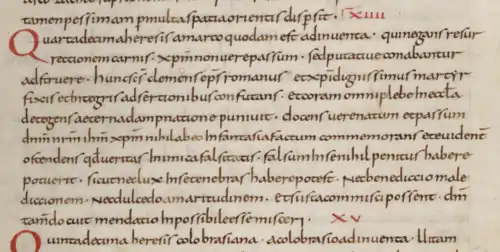 tamen pessimam p multa spatia orientis dispsit. XIIII
Quarta decima heresis a marco quodam est adinventa. qui negans resur
rectionem carnis. xpm non vere passum. sed putative conabatur
adstruere. hunc scs clemens eps romanus et xpi dignissimus martyr
fixis et integris adsertionibus confutans. et coram omni plebe in eccla
detegens aeterna damnatione punivit. docens vere natum et passum
dnm nrm ihm xpm nihil ab eo in fantasia factum commemorans et evident
ostendens qd veritas inimica falsitatis. falsum in se nihil penitus habere
potuerit. sicut nec lux in se tenebras habere potest. Nec benedictio male
dictionem. Nec dulcedo amaritudinem. et si iusta commisci possent. dm
tamdo cuit mendatio impossibile esse misceri. XV
Quinta decima heresis colobrasiana. a colobrasio adinventa. ll itam